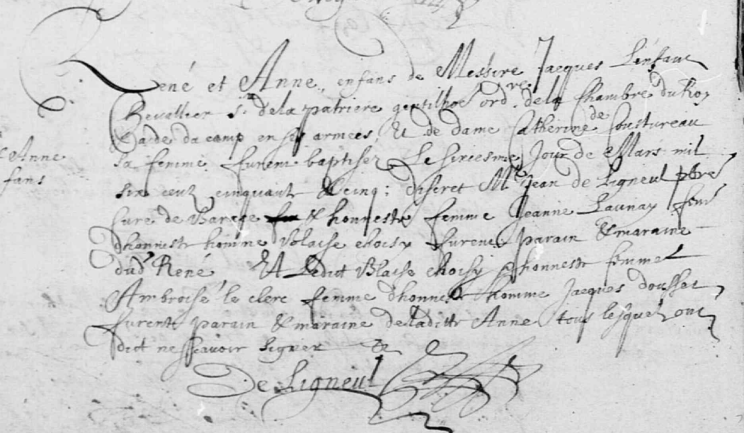 René et Anne, enfans de Messire Jacques Lenfant
Chevallier sr. de la patriere gentilhoe ordre. de la Chambre du Roy
Ayde de camp en ses armées, Et de dame Catherine de Coustureau
sa femme furent baptisez Le sixiesme Jour de Mars mil
& Anne
fans
six cent cinquant & cinq: discret Mre Jean de Ligneul pbre
Curé de & honneste femme Jeanne Launay fem
dhonneste homme Blaise choisy furent parain & maraine
dudt René Et Ledict Blaise choisy & honneste femme
Ambroise le clerc femme dhonneste homme Jacques doussat
furent parain & maraine de laditte Anne tous lesquelz ont
dict ne scavoir signer
De Ligneul